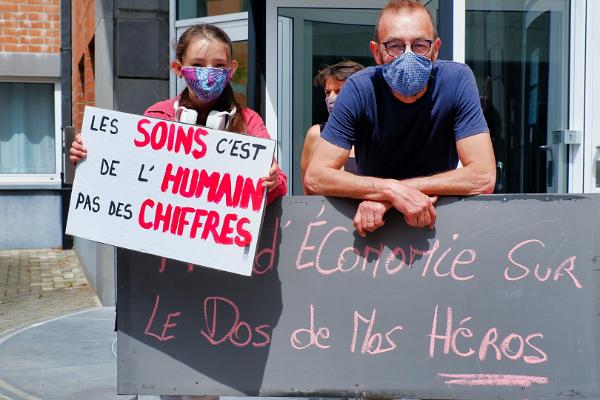 LES SOINS C'EST
DE L'HUMAIN
PAS DES CHIFFRES
d'Économie Sur
Le Dos de Nos Héros